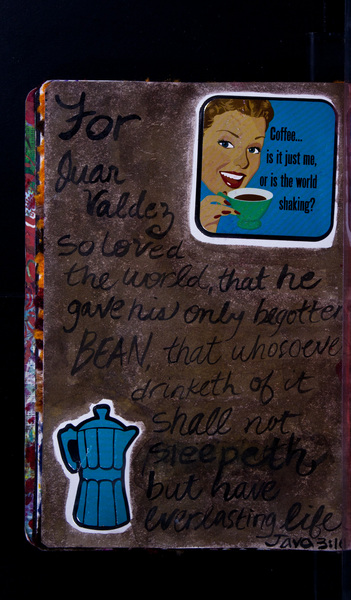 For
Juan
Valdez
so loved
the world, that he
gave his only begotten
BEAN, that whosoeve
drinketh of it
shall not
sleepeth,
but have
everlasting life
Java 3:16
Coffee...
is it just me,
or is the world
shaking?